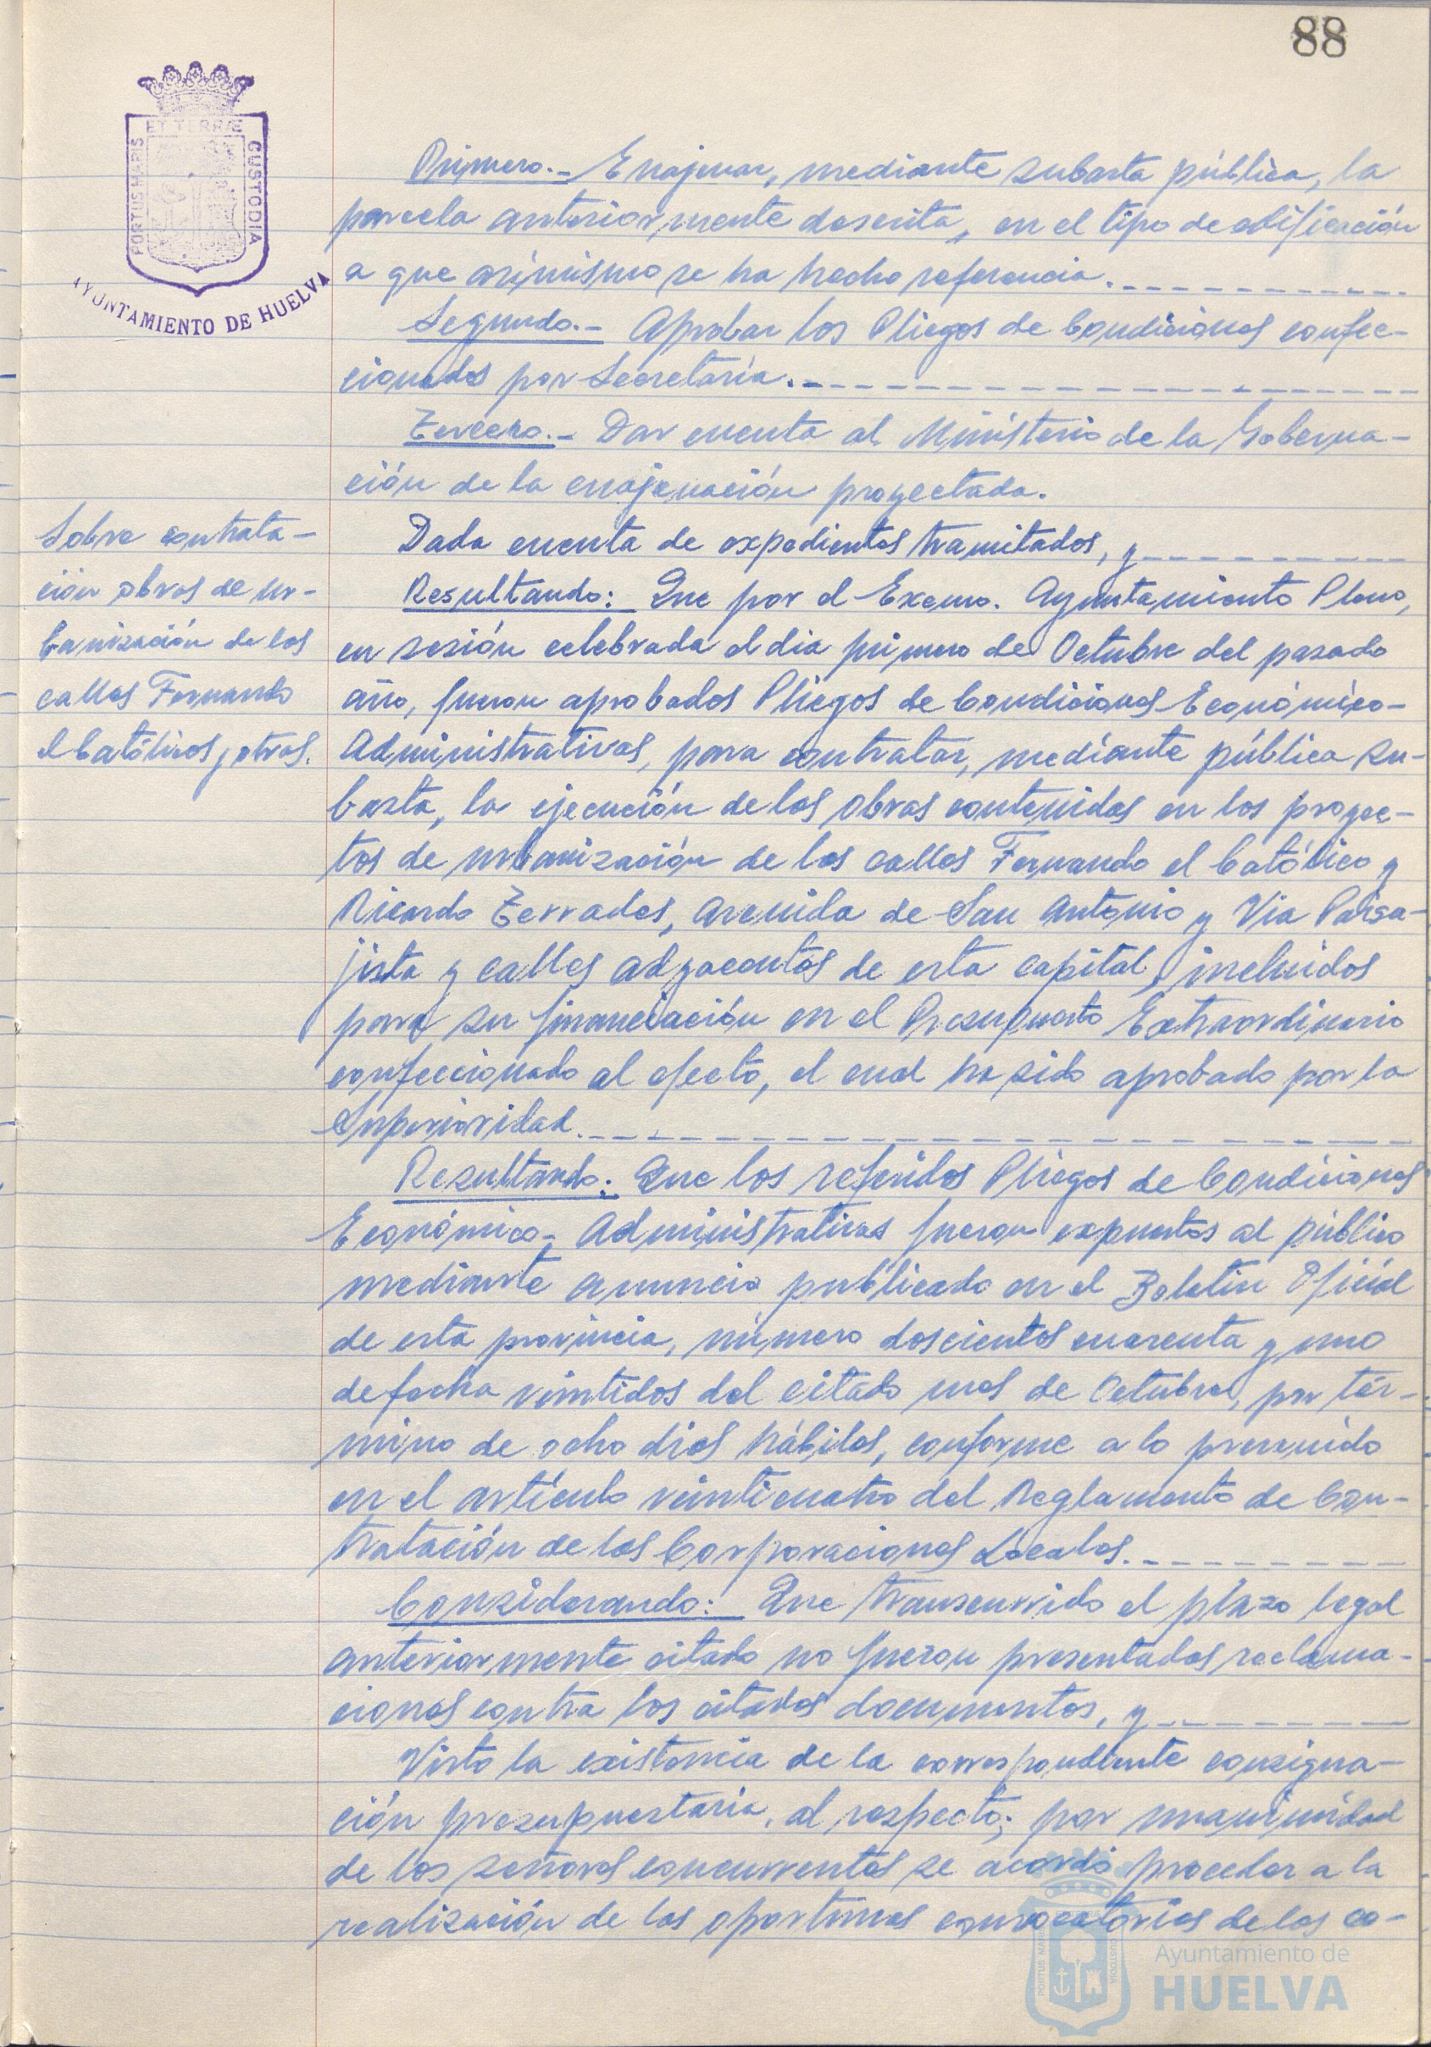 88
PORTUS MARIS ET TERRÆ CUSTODIA
AYUNTAMIENTO DE HUELVA
Primero.- Enajenar, mediante subasta pública, la
parcela anteriormente descrita, en el tipo de edificación
a que asimismo se ha hecho referencia.
Segundo.- Aprobar los Pliegos de Condiciones confec-
cionados por Secretaría.
Tercero.- Dar cuenta al Ministerio de la Goberna-
ción de la enajenación proyectada.
Sobre contrata-
ción obras de ur-
banización de las
calles Fernando
el Católicos y otras.
Dada cuenta de expedientes tramitados, y
Resultando: Que por el Excmo. Ayuntamiento Pleno,
en sesión celebrada el dia primero de Octubre del pasado
año, fueron aprobados Pliegos de Condiciones Económico-
Administrativas, para contratar, mediante pública su-
basta, la ejecución de las obras contenidas en los proyec-
tos de urbanización de las calles Fernando el Católico y
Ricardo Terrades, Avenida de San Antonio y Via Paisa-
jista y calles adyacentes de esta capital, incluidos
para su financiación en el Presupuesto Extraordinario
confeccionado al efecto, el cual ha sido aprobado por la
Superioridad.
Resultando: Que los referidos Pliegos de Condiciones
Económico-Administrativas fueron expuestos al público
mediante anuncio publicado en el Boletin Oficial
de esta provincia, número doscientos cuarenta y uno
de fecha veintidos del citado mes de Octubre, por tér-
mino de ocho dias hábiles, conforme a lo prevenido
en el artículo veinticuatro del Reglamento de Con-
tratación de las Corporaciones Locales.
Considerando: Que transcurrido el plazo legal
anteriormente citado no fueron presentadas reclama-
ciones contra los citados documentos, y
Visto la existencia de la correspondiente consigna-
ción presupuestaria, al respecto; por unanimidad
de los señores concurrentes se acordó proceder a la
realización de las oportunas convocatorias de las co-
PORTUS MARIS CUSTODIA
Ayuntamiento de
HUELVA